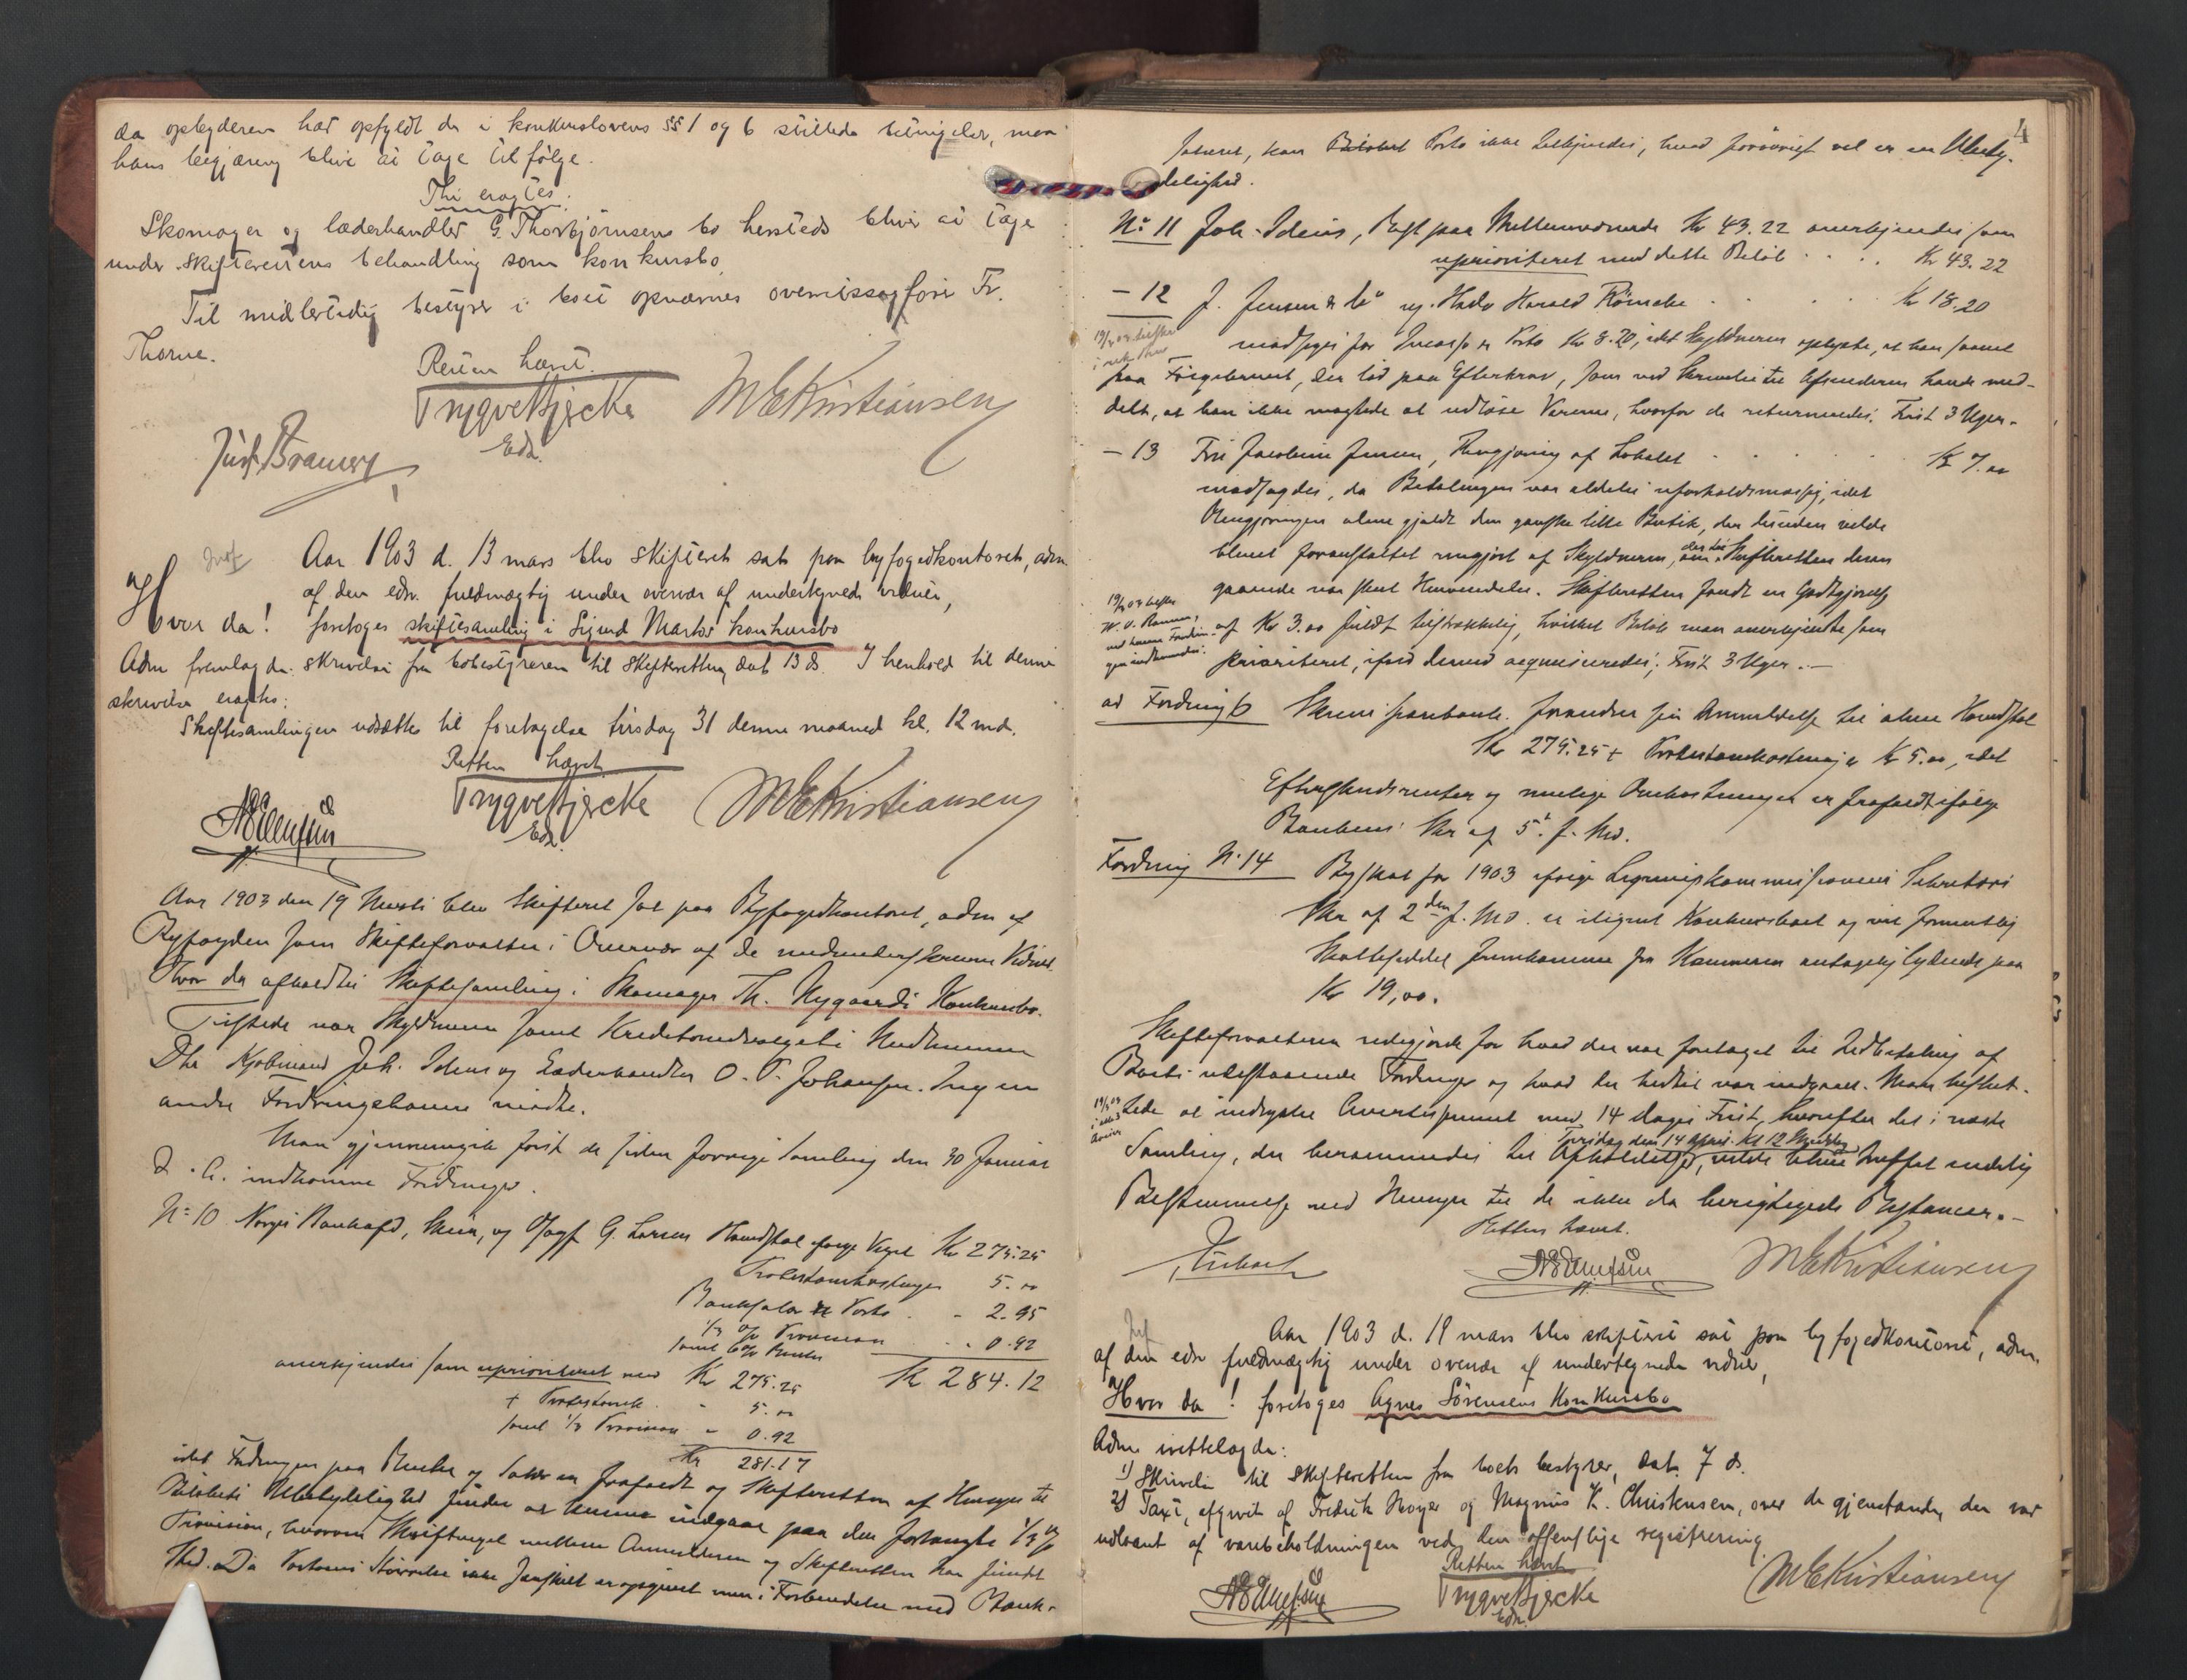 da opbyderen har opfyldt de i konkurslovens §§ 1 og 6 stillede betingelser, maa
hans begjæring blive at tage til følge.
Thi eragtes:
Skomager og læderhandler G. Thorbjørnsens bo hersteds bliver at tage
under skifterettens behandling som konkursbo.
Til midlertidig bestyrer i boet opnævnes overretssagfører Fr.
Thorne.
Retten hævet.
Trygve Hjercke
M E Kristiansen
Edsv.
Just. Bramer
Aar 1903 d. 13 mars blev skifteret sat paa byfogedkontoret, adm
af den edsv. fuldmægtig under overvær af undertegnede vidner,
Hvor da! foretoges skiftesamling i Sigurd Martos konkursbo
Adm fremlagde skrivelse fra bobestyreren til skifteretten dat 13 ds. I henhold til denne
skrivelse eragtes:
Skiftesamlingen udsættes til foretagelse tirsdag 31 denne maaned kl. 12 md.
Retten hævet.
Trygve Hjercke
M E Kristiansen
Edsv.
Aar 1903 den 19 Marts blev Skifteret sat paa Byfogedkontoret, adm af
Byfogden som Skifteforvalter i Overvær af de medunderskrevne Vidner.
Hvor da afholdtes Skiftesamling i Skomager Th. Nygaards Konkursbo.
Tilstede var Skyldneren samt Kreditorudvalgets Medlemmer
Dhr Kjøbmand Joh. Idens og Læderhandler O. T. Johansen. Ingen
andre Fordringshavere mødte.
Man gjennemgik først de siden forrige Samling den 30 Januar
d. A. indkomne Fordringer.
No 10 Norges Bankafd, Skien, og Osagf G. Larsen Hovedstol ifølge Vexel Kr 275.25
Protestomkostninger 5.00
Banksalær & Porto - 2.95
1/3 % Provision - 0.92
samt 6 % Renter
anerkjendes som uprioriteret med Kr 275.25 Kr 284.12
+ Protestomk. - 5.00
samt 1/3 Provision - 0.92
Kr 281.17
idet Fordringen paa Renter og Salær er frafaldt og Skifteretten af Hensyn til
Beløbets Ubetydelighed finder at kunne indgaa paa den forlangte 1/3 %
Provision, hvorom Skriftvexel mellem Anmelderen og Skifteretten har fundet
Sted. Da Portoens Størrelse ikke særskilt er opgivet men i Forbindelse med Bank-
4
salæret, kan Beløbet Porto ikke godkjendes, hvad forøvrigt vel er en Ubety-
delighed.
No 11 Joh. Idens, Rest paa Mellemværende Kr 43.22 anerkjendes som
uprioriteret med dette Beløb . . . . Kr 43.22
- 12 J. Jensen & Co v. Hadv Harald Römcke . . . Kr 18.20
modsiges for Incasso & Porto Kr 3.20, idet Skyldneren oplyste, at han saavel
paa Følgebrevet, der lød paa Efterkrav, som ved Skrivelse til Afsenderen havde med-
delt, at han ikke magtede at udløse Varerne, hvorfor de returneredes. Frist 3 Uger.
- 13 Fru Jacobine Jensen, Rengjøring af Lokalet . . . . Kr 7.00
modsagdes, da Betalingen var aldeles uforholdsmæssig, idet
Rengjøringen alene gjaldt den ganske lille Butik, der desuden vilde
blevet foranstaltet rengjort af Skyldneren, om der til Skifteretten derom
gaaende var skeet Henvendelse. Skifteretten fandt en Godtgjørelse
af Kr 3.00 fuldt tilstrækkelig, hvilket Beløb man anerkjendte som
prioriteret, ifald dermed acquiesceredes; Frist 3 Uger.-
ad Fordring 6 Skiens Sparebank forandrer sin Anmeldelse til alene Hovedstol
Kr 275.25 + Protestomkostninger Kr 5.00, idet
Efterskudsrenter og øvrige Omkostninger er frafaldt ifølge
Bankens Skr af 5te f. Md.
Fordring No 14 Byskat for 1903 ifølge Ligningskommissionens Sekretærs
Skr af 2den f. Md. er ilignet Konkursboet og vil formentlig
Skatteseddel fremkomme fra Kæmneren antagelig lydende paa
Kr 19,00.
Skifteforvalteren redegjorde for hvad der var foretaget til Indbetaling af
Boets udestaaende Fordringer og hvad der hidtil var indgaaet. Man beslut-
tede at indrykke Avertissement med 14 Dages Frist, hvorefter det i næste
Samling, der berammedes til Afholdelse Tirsdag den 14 April Kl 12 Middag, vilde blive truffet endelig
Bestemmelse med Hensyn til de ikke da berigtigede Restancer.-
Retten hævet.
M E Kristiansen
Aar 1903 d. 19 mars blev skifteret sat paa byfogedkontoret, adm.
af den edsv fuldmægtig under overvær af undertegnede vidner,
Hvor da! foretoges Agnes Sörensens Konkursbo
Adm irettelagde:
1) Skrivelse til Skifteretten fra boets bestyrer, dat. 7 ds.
2) Taxt, afgivet af Fredrik Høyer og Magnus K. Christensen, over de gjenstande, der var
udtaget af varebeholdningen ved den offentlige registrering.
Retten hævet
Trygve Hjercke
Edsv.
M E Kristiansen